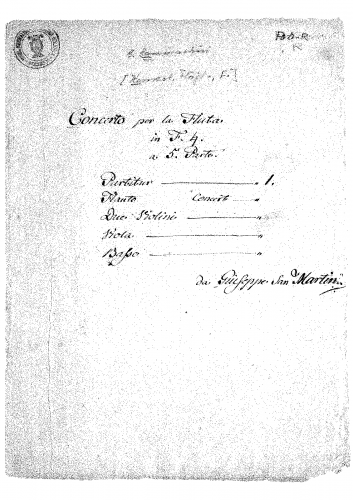 Concerto per la Flauta
in F. 4.
a 5. Parte.
Partitur 1.
Flauto Concert "
Due Violini "
Viola "
Basso "
da Giuseppe San Martini